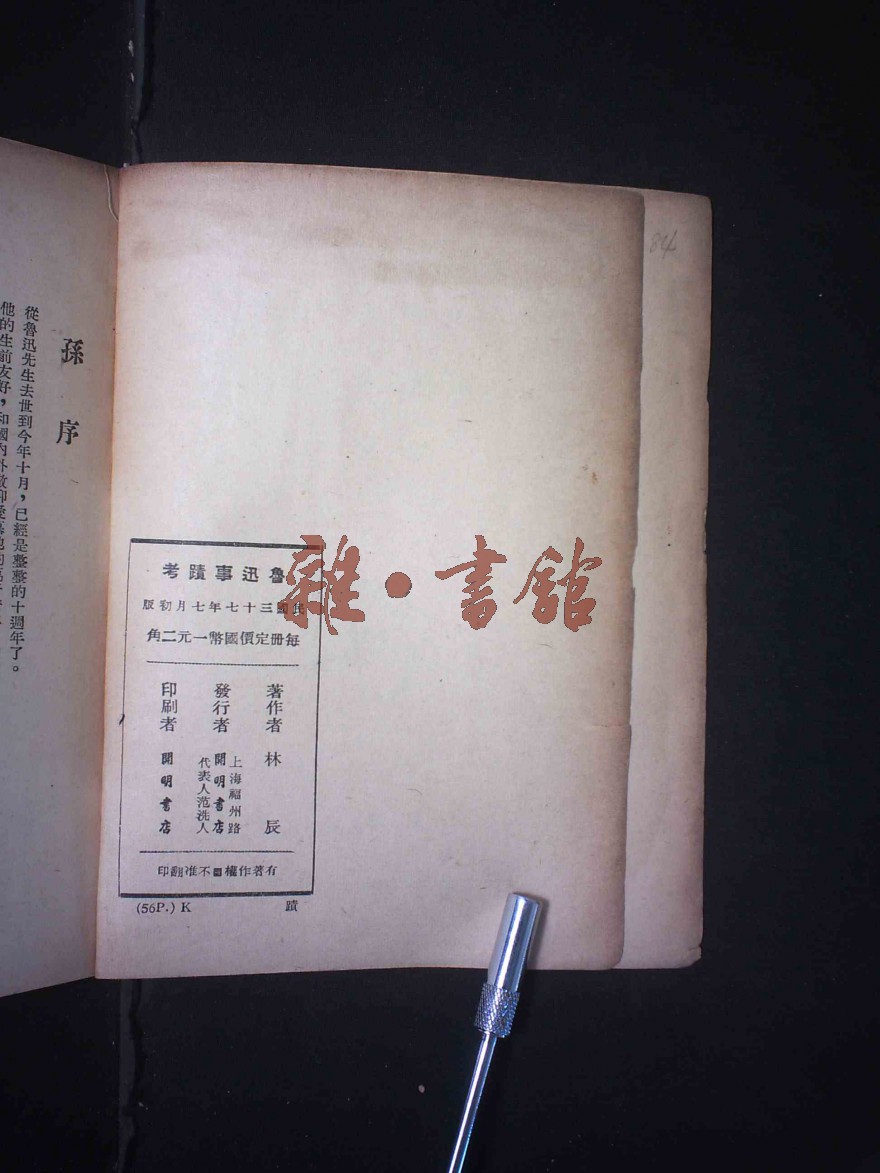 84
魯迅事蹟考
民國三十七年七月初版
每冊定價國幣一元二角
著作者 林辰
發行者 上海福州路
開明書店
代表人范洗人
印刷者 開明書店
有著作權不准翻印
(56P.) K 蹟
雜·書館
孫序
從魯迅先生去世到今年十月，已經是整整的十週年了。
他的生前友好，和國內外